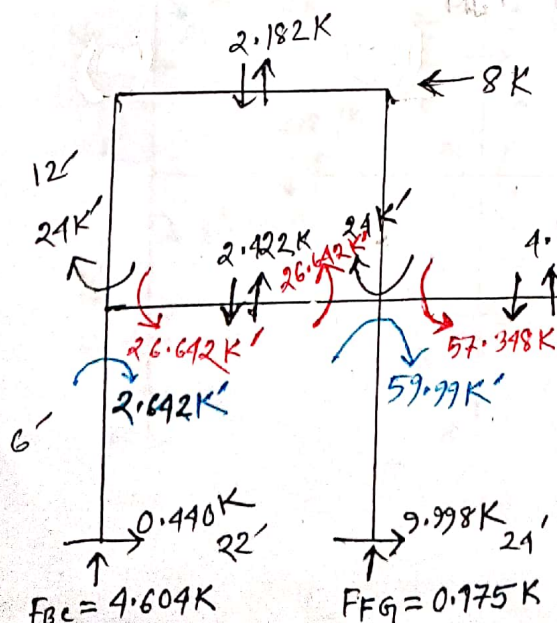 2.182K
8K
12′
24K′
2.422K
24K′
26.642K′
4.
26.642K′
57.348K
2.642K′
59.99K′
6′
0.440K
9.998K
22′
24′
FBC = 4.604K
FFG = 0.175K